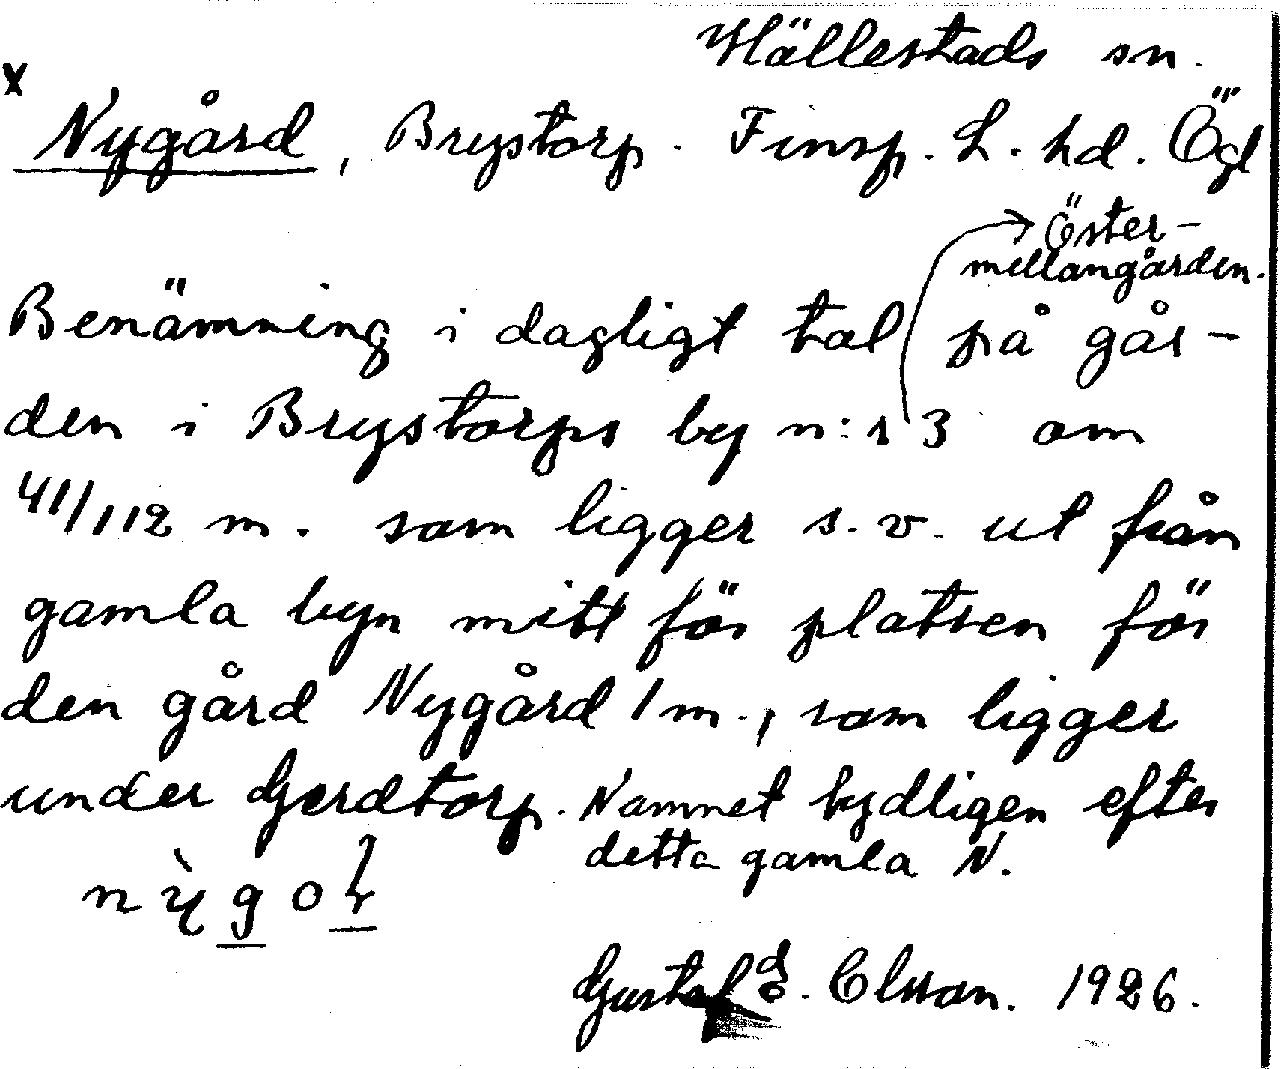 Hällestads sn.
x
Nygård, Brystorp. Finsp. L. hd. Ögl
Öster-
mellangården.
Benämning i dagligt tal på går-
den i Brystorps by n:r 3 om
41/112 m. som ligger s. v. ut från
gamla byn mitt för platsen för
den gård Nygård 1 m., som ligger
under Gerdtorp. Namnet tydligen efter
detta gamla N.
Gustaf E. Olsson. 1926.